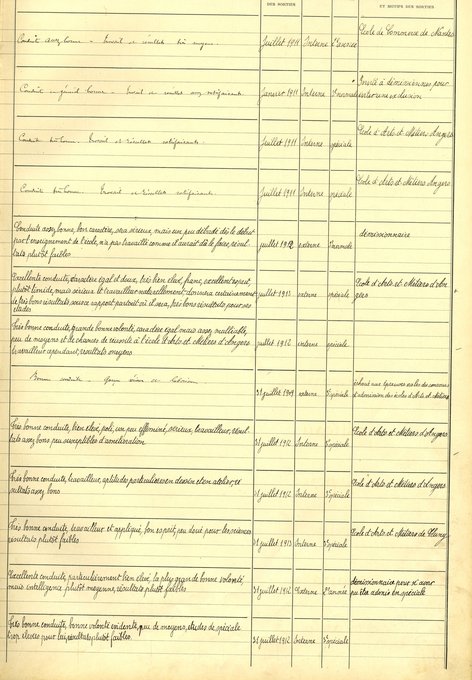 DES SORTIES
ET MOTIFS DES SORTIES
Conduite assez bonne - Travail et résultats très moyens. Juillet 1911 Interne 2e année École de Commerce de Nantes
Conduite en général bonne - Travail et résultats assez satisfaisants. Janvier 1911 Interne 3e normale Invité à démissionner, pour
Conduite très bonne. Travail et résultats satisfaisants. Juillet 1911 Interne spéciale École d'Arts et Métiers Angers
Conduite très bonne. Travail et résultats satisfaisants Juillet 1911 Interne spéciale École d'Arts et Métiers Angers
Conduite assez bonne, bon caractère, assez sérieux, mais un peu débordé dès le début
par l'enseignement de l'école, n'a pas travaillé comme il aurait dû le faire, résul- juillet 1912 externe démissionnaire
tats plutôt faibles
Excellente conduite, caractère égal et doux, très bien élevé, franc, excellent esprit,
plutôt timide, mais sérieux et travailleur
de très bons résultats sous ce rapport partout où il sera, très bons résultats pour ses juillet 1913 externe spéciale École d'Arts et Métiers d'An
études gers
Très bonne conduite, grande bonne volonté, caractère égal mais assez malléable,
peu de moyens et de chances de réussite à l'école d'Arts et Métiers d'Angers juillet 1912 interne spéciale
travailleur cependant, résultats moyens
Bonne conduite - 31 juillet 1909 externe Spéciale échoué aux épreuves orales du concours
d'admission des écoles d'Arts et Métiers
Très bonne conduite, bien élevé, poli, un peu efféminé, sérieux, travailleur, résul-
tats assez bons peu susceptibles d'amélioration 31 juillet 1912 Interne Spéciale École d'Arts et Métiers d'Angers
Très bonne conduite, travailleur, aptitudes particulières en dessin et en atelier, ré
sultats assez bons 31 juillet 1912 Interne Spéciale École d'Arts et Métiers d'Angers
Très bonne conduite, travailleur et appliqué, bon esprit, peu doué pour les sciences
résultats plutôt faibles 31 juillet 1913 Interne Spéciale École d'Arts et Métiers de Cluny
Excellente conduite, particulièrement bien élevé, la plus grande bonne volonté
mais intelligence plutôt moyenne, résultats plutôt faibles 31 juillet 1912 Interne 2e année démissionnaire pour n'avoir
pu être admis en spéciale
Très bonne conduite, bonne volonté évidente, peu de moyens, études de spéciale
trop élevées pour lui, résultats plutôt faibles. 31 juillet 1912 Interne Spéciale